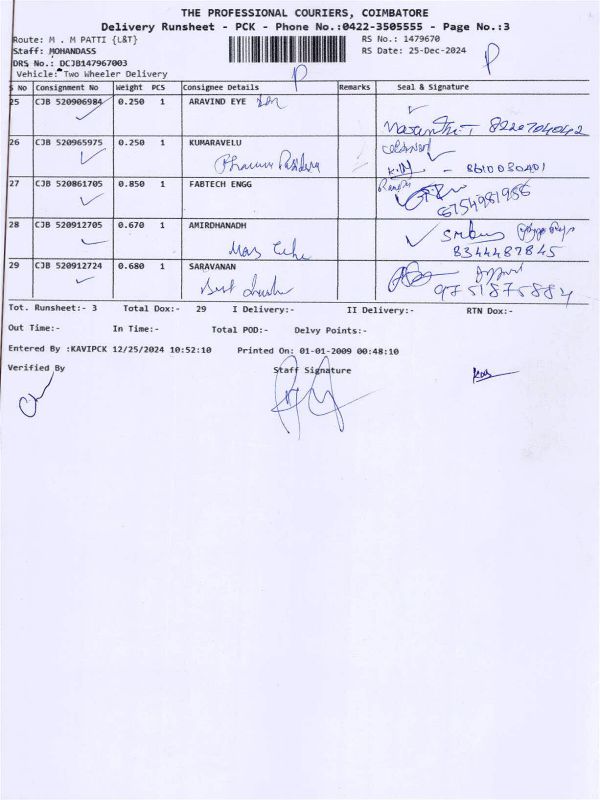 THE PROFESSIONAL COURIERS, COIMBATORE
Delivery Runsheet - PCK - Phone No.:0422-3505555 - Page No.:3
Route: M . M PATTI {L&T} RS No.: 1479670
Staff: MOHANDASS RS Date: 25-Dec-2024
DRS No.: DCJB147967003
Vehicle: Two Wheeler Delivery P P
S No Consignment No Weight PCS Consignee Details Remarks Seal & Signature
25 CJB 520906984 0.250 1 ARAVIND EYE
26 CJB 520965975 0.250 1 KUMARAVELU
8610030401
27 CJB 520861705 0.850 1 FABTECH ENGG
28 CJB 520912705 0.670 1 AMIRDHANADH
8344487845
29 CJB 520912724 0.680 1 SARAVANAN
9751875884
Tot. Runsheet:- 3 Total Dox:- 29 I Delivery:- II Delivery:- RTN Dox:-
Out Time:- In Time:- Total POD:- Delvy Points:-
Entered By :KAVIPCK 12/25/2024 10:52:10 Printed On: 01-01-2009 00:48:10
Verified By Staff Signature